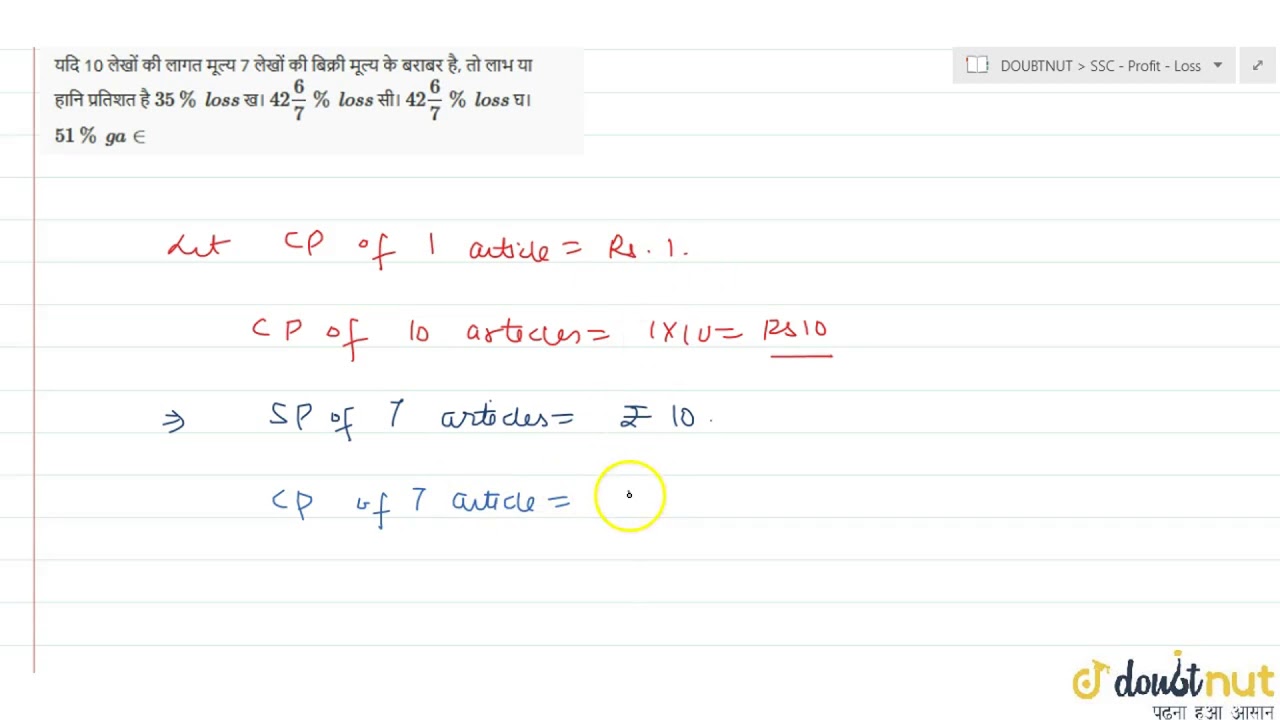 यदि 10 लेखों की लागत मूल्य 7 लेखों की बिक्री मूल्य के बराबर है, तो लाभ या
हानि प्रतिशत है 35 % loss ख। 42 6/7 % loss सी। 42 6/7 % loss घ।
51 % ga ∈
DOUBTNUT > SSC - Profit - Loss
Let CP of 1 article = Rs. 1.
CP of 10 artecles = 1X10 = Rs 10
⇒ SP of 7 articles = ₹ 10.
CP of 7 article =
doubtnut
पढना हुआ आसान